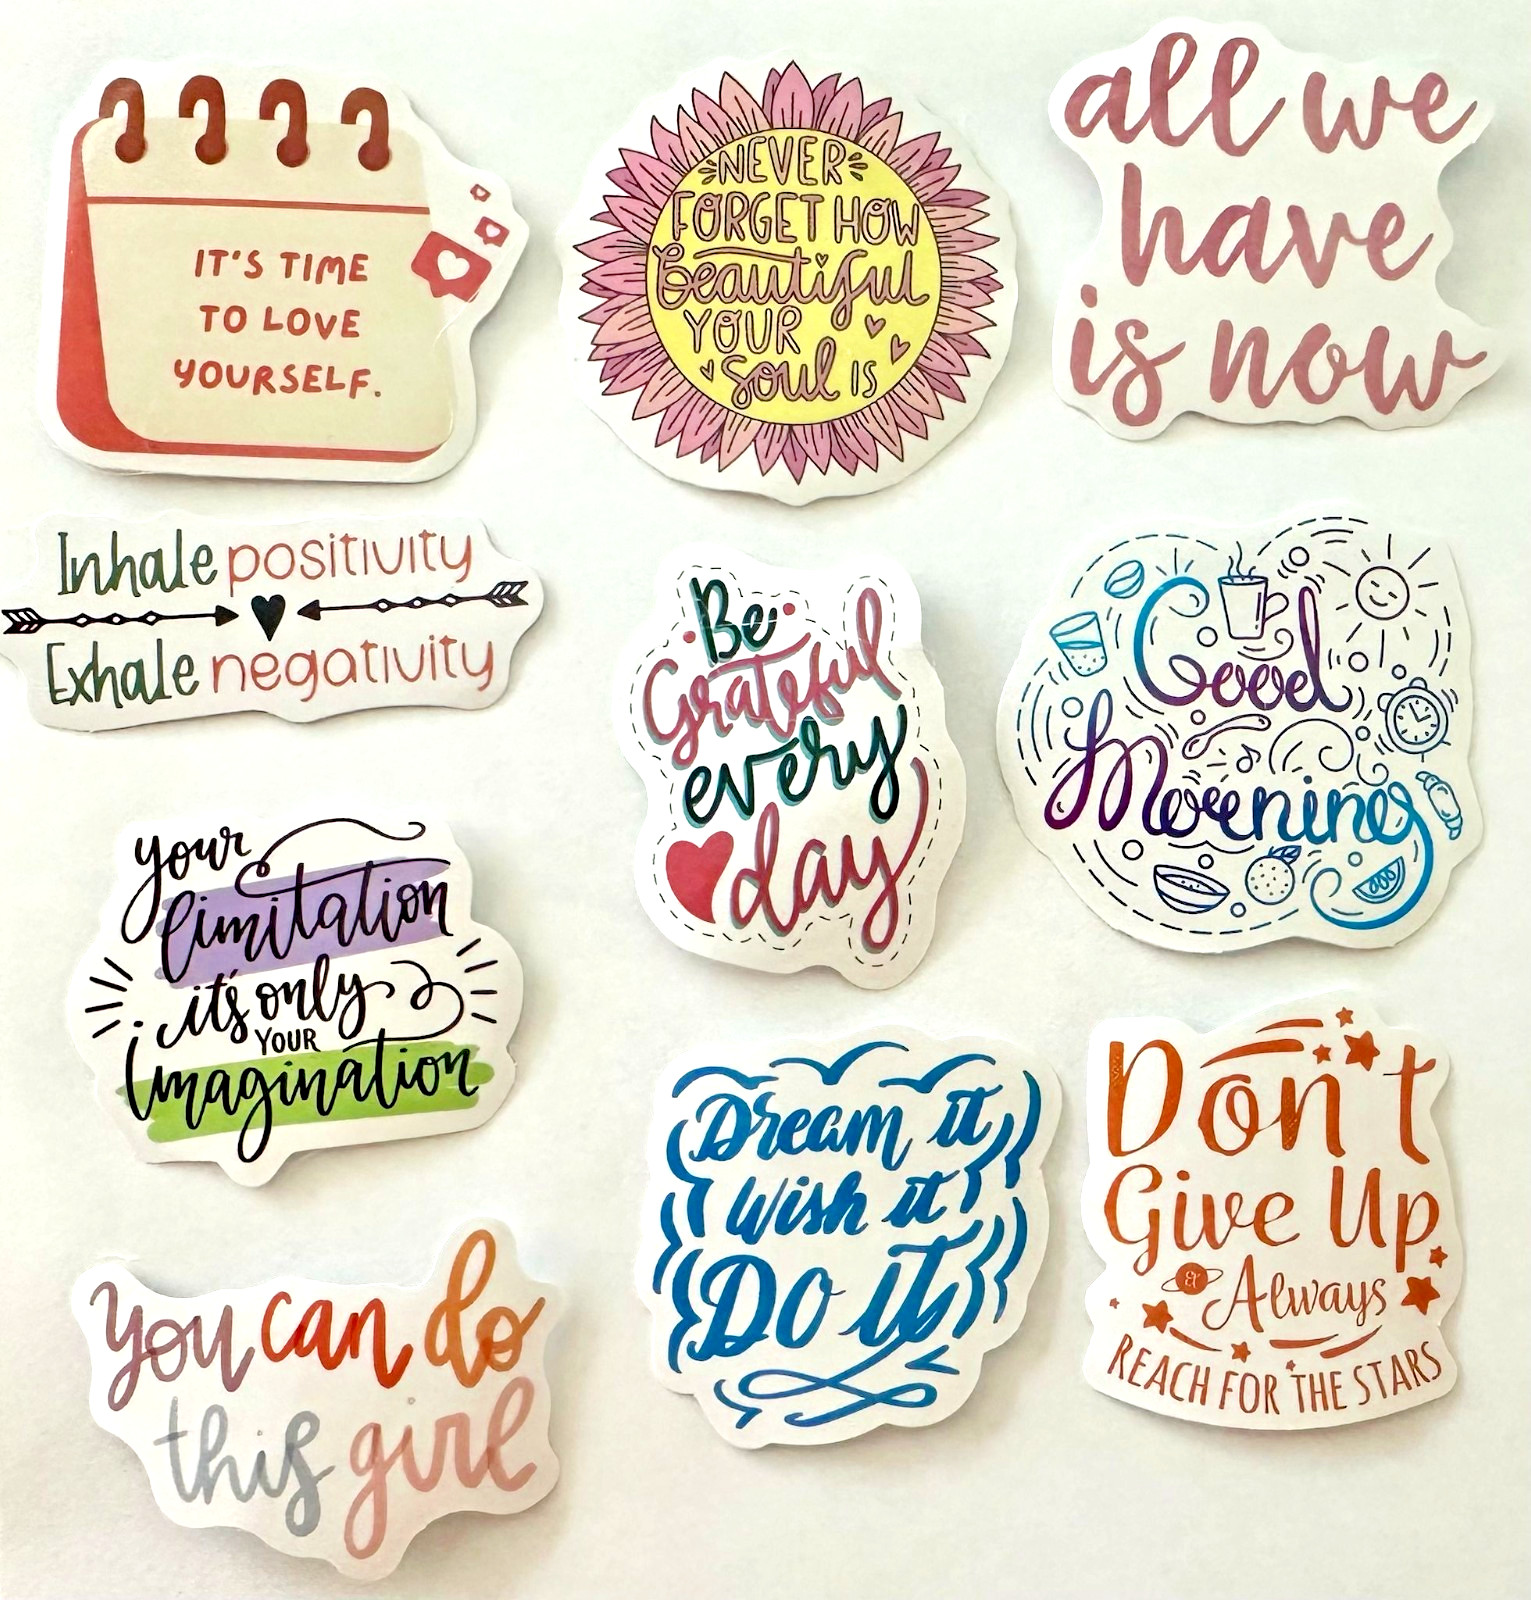 IT'S TIME
TO LOVE
YOURSELF.
NEVER
FORGET HOW
beautiful
YOUR
soul IS
all we
have
is now
Inhale positivity
Exhale negativity
Be
Grateful
every
day
Good
Morning
your
limitation
it's only
YOUR
imagination
Dream it
Wish it
Do it
Don't
Give Up
& Always
REACH FOR THE STARS
You can do
this girl